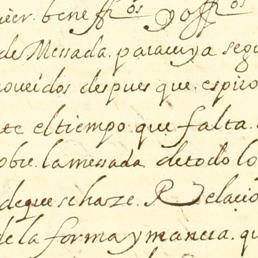 uier. benefiᵒˢ y offiᵒˢ
de Messada. para cuya segu
oueidos despues que espiro
te el tiempo. que falta.
obre. la messada de todo lo
de que se haze. Relacio
de la forma y manera. qu